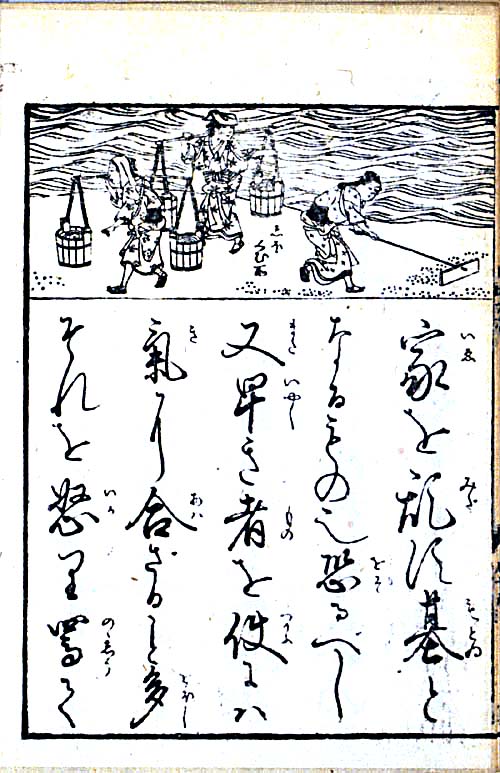 しほ
くむ所
家を乱す基と
なるもの也恐るべし
又卑き者を使には
氣に合ざること多
それを怒り罵て